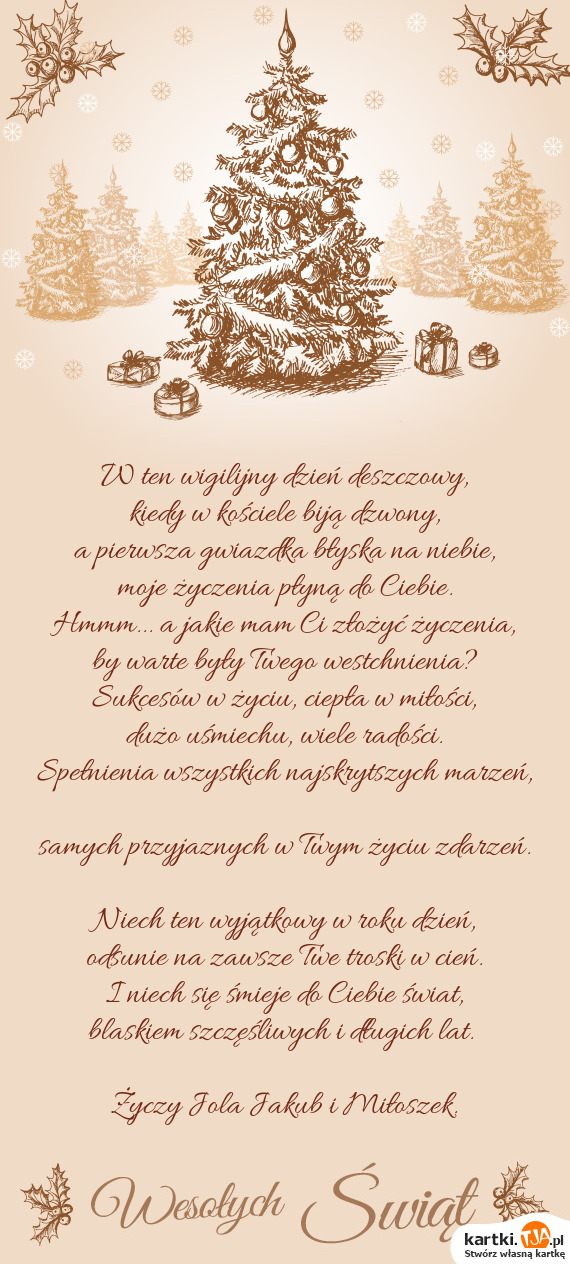 W ten wigilijny dzień deszczowy,
kiedy w kościele biją dzwony,
a pierwsza gwiazdka błyska na niebie,
moje życzenia płyną do Ciebie.
Hmmm... a jakie mam Ci złożyć życzenia,
by warte były Twego westchnienia?
Sukcesów w życiu, ciepła w miłości,
dużo uśmiechu, wiele radości.
Spełnienia wszystkich najskrytszych marzeń,
samych przyjaznych w Twym życiu zdarzeń.
Niech ten wyjątkowy w roku dzień,
odsunie na zawsze Twe troski w cień.
I niech się śmieje do Ciebie świat,
blaskiem szczęśliwych i długich lat.
Życzy Jola Jakub i Miłoszek.
Wesołych Świąt
kartki.TJA.pl
Stwórz własną kartkę